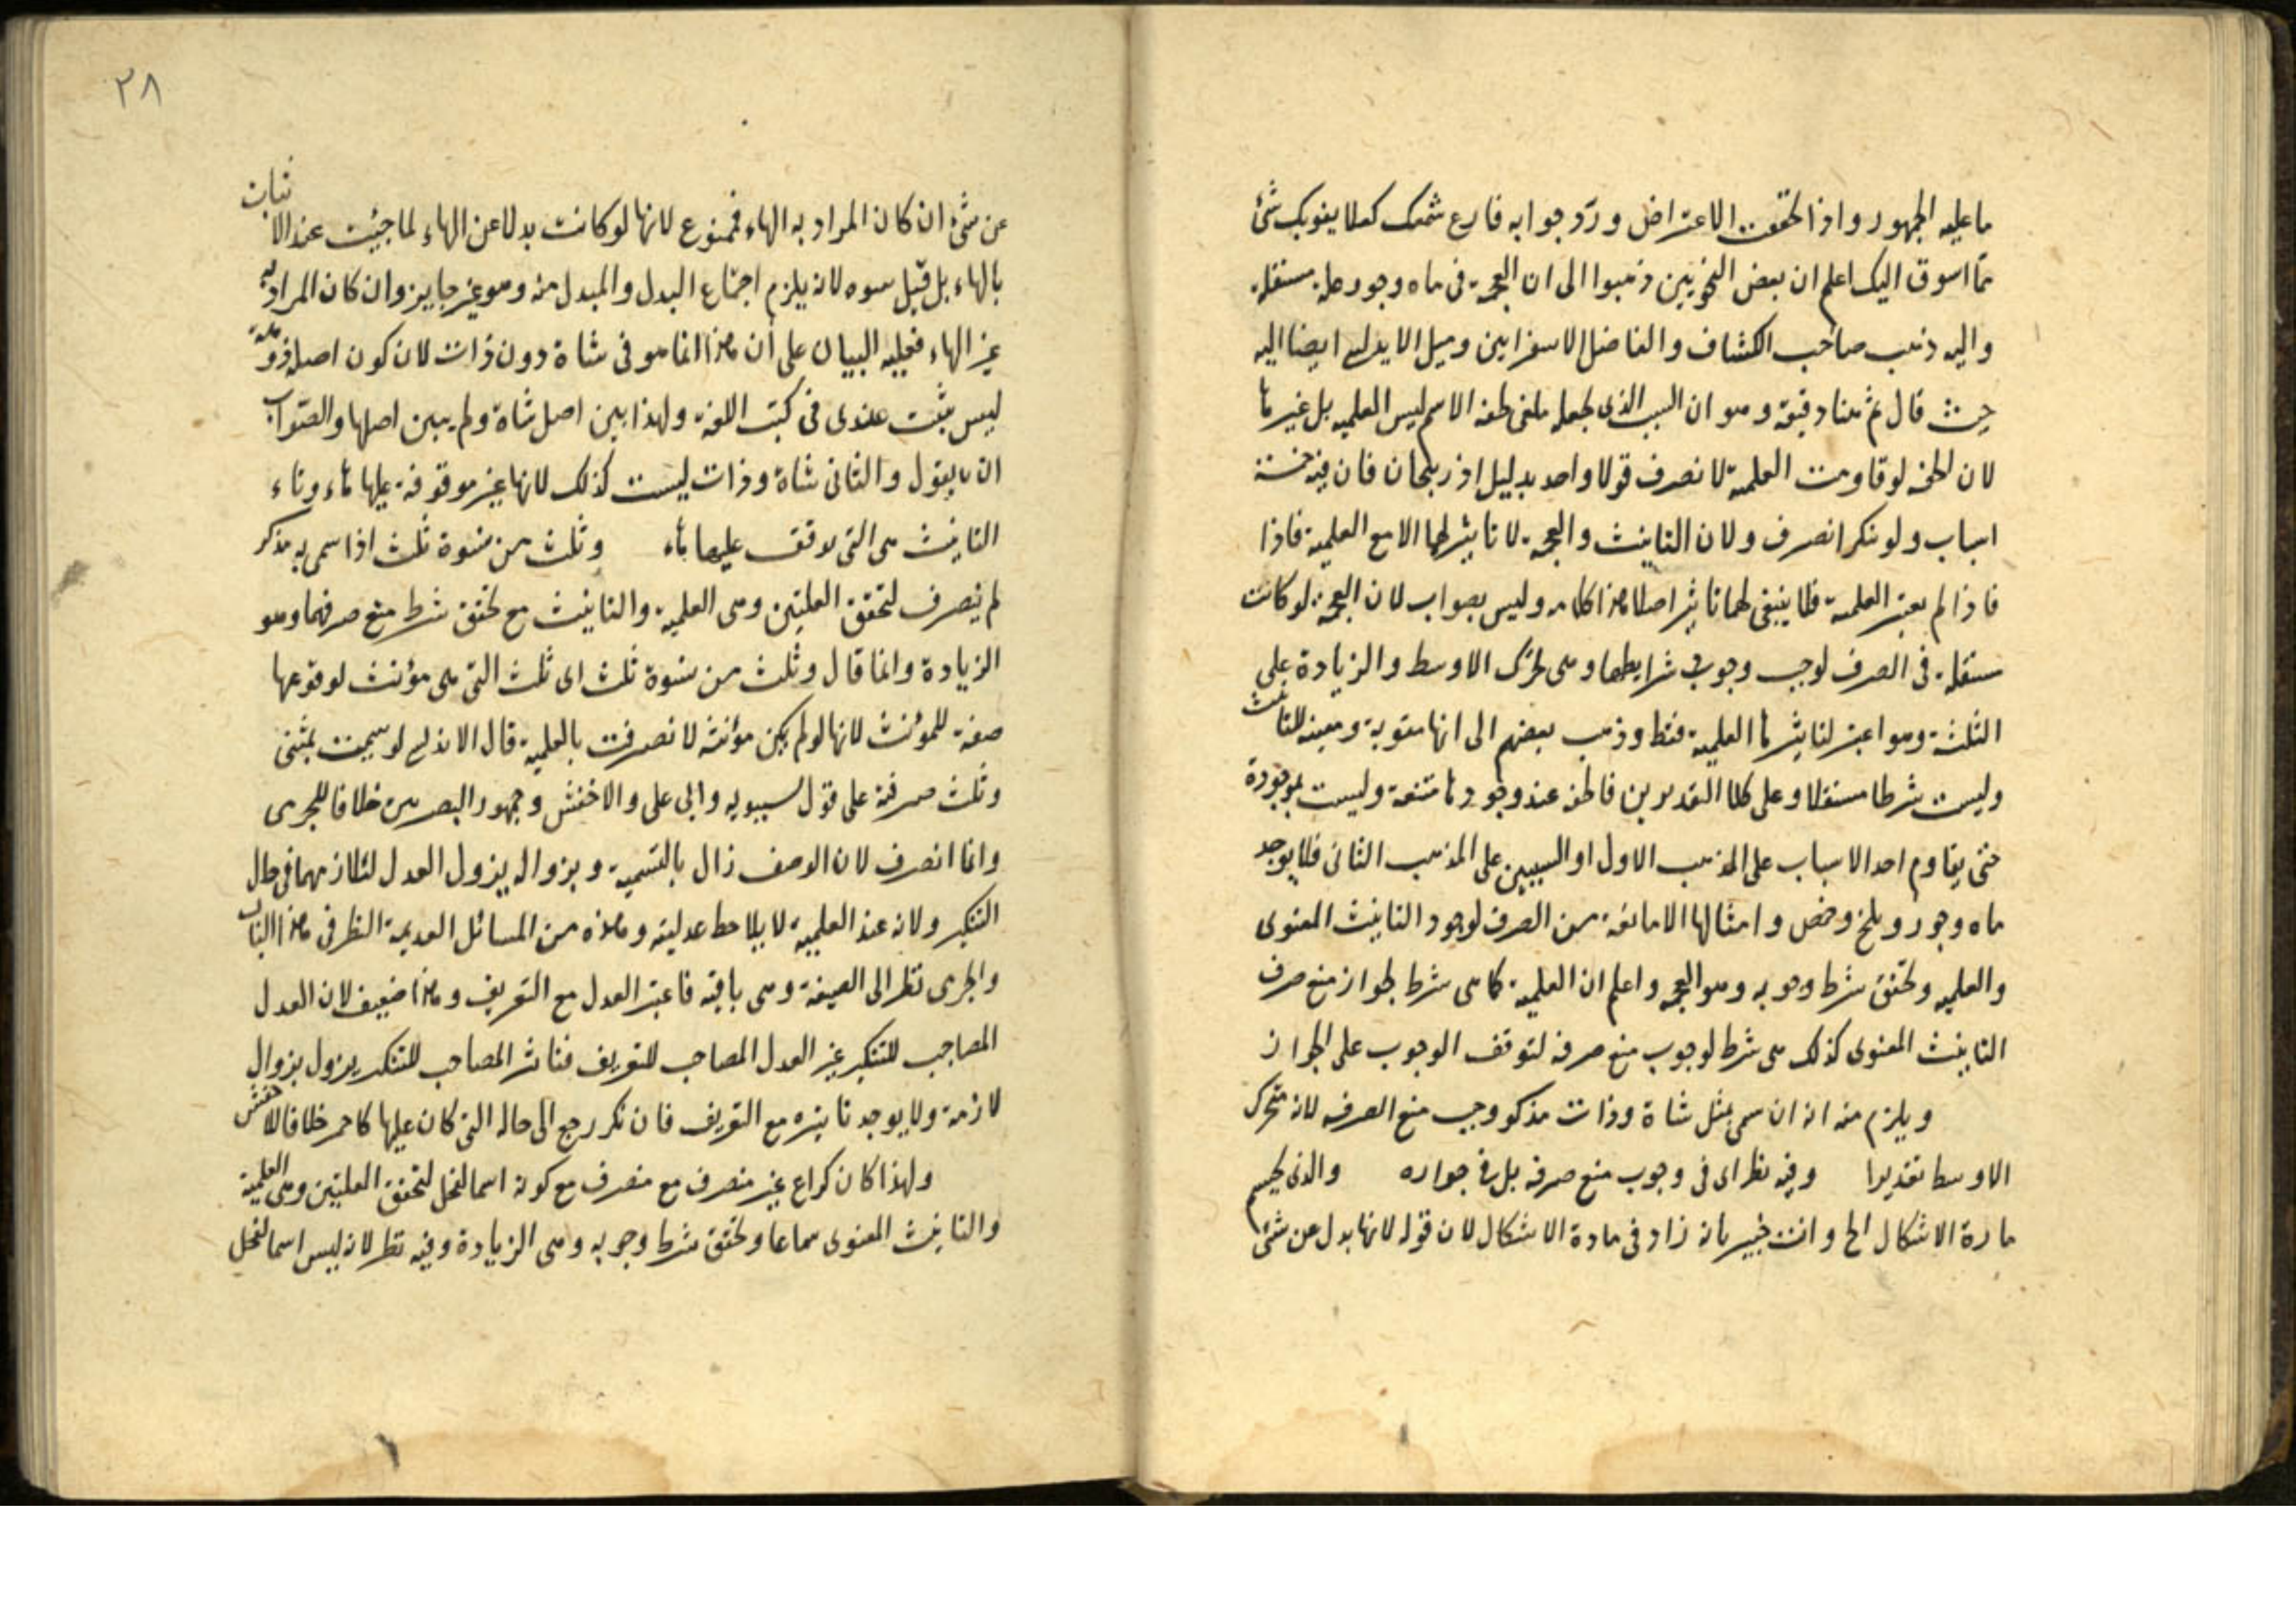 ما عليه الجمهور واذا تحققت الاعتراض ورد جوابه فارع سمعك كملا يفوتك شئ
مما اسوق اليك اعلم ان بعض النحويين ذهبوا الى ان العجمة فى ماه وجور علة مستقلة
واليه ذهب صاحب الكشاف والفاضل الاسفراينى وميل الاندلسى ايضا اليه
حيث قال ثم هنا دقيقة وهو ان السبب الذى تجعله ملغى لخفة الاسم ليس العلمية بل غيرها
لان الخفة لو قاومت العلمية لانصرف قولا واحدا بدليل اذربيجان فان فيه خمسة
اسباب ولو نكر انصرف ولان التانيث والعجمة لا تاثير لهما الا مع العلمية فاذا
فاذا لم يعتبر العلمية فلا ينبغى لهما تاثير اصلا هذا كلامه وليس بصواب لان العجمة لو كانت
مستقلة فى الصرف لوجب وجوب شرايطها وهى تحرك الاوسط والزيادة على
الثلثة وهو اعتبر لتاثيرها العلمية فقط وذهب بعضهم الى انها مقوية ومعينة للتانيث
وليست شرطا مستقلا وعلى كلا التقديرين فالخفة عند وجودها منتفية وليست بموجودة
حتى يقاوم احد الاسباب على المذهب الاول او السببين على المذهب الثانى فلا يوجد
ماه وجور وبلخ وحمص وامثالها الا مانعة من الصرف لوجود التانيث المعنوى
والعلمية وتحقق شرط وجوبه وهو العجمة واعلم ان العلمية كما هى شرط لجواز منع صرف
التانيث المعنوى كذلك هى شرط لوجوب منع صرفه لتوقف الوجوب على الجواز
ويلزم منه انه ان سمى بمثل شاة وذات مذكر وجب منع الصرف لانه متحرك
الاوسط تقديرا وفيه نظر اى فى وجوب منع صرفه بل فى جوازه والذى يحسم
مادة الاشكال الخ وانت خبير بانه زاد فى مادة الاشكال لان قوله لانها بدل عن شئ
٢٨
عن شئ ان كان المراد به الهاء فممنوع لانها لو كانت بدلا عن الهاء لما جيئت عند الاثبات
بالهاء بل قيل سوه لانه يلزم اجتماع البدل والمبدل منه وهو غير جايز وان كان المراد به
غير الهاء فعليه البيان على أن هذا انما هو فى شاة دون ذات لان كون اصله
ليس بثبت عندى فى كتب اللغة ولهذا بين اصل شاة ولم يبين اصلها والصواب
ان يقول والثانى شاة وذات ليست كذلك لانها غير موقوفة عليها هاء وتاء
التانيث هى التى توقف عليها هاء وثلث من نسوة ثلث اذا سمى به مذكر
لم ينصرف لتحقق العلتين وهى العلمية والتانيث مع تحقق شرط منع صرفهما وهو
الزيادة وانما قال وثلث من نسوة ثلث اى ثلث التى هى مؤنث لوقوعها
صفة للمؤنث لانها لو لم يكن مؤنثة لانصرفت بالعلمية قال الاندلسى لو سميت بمثنى
وثلث صرفته على قول سيبويه وابى على والاخفش وجمهور البصريين خلافا للجرمى
وانما انصرف لان الوصف زال بالتسمية وبزواله يزول العدل لتلازمهما فى حال
التنكير ولانه عند العلمية لا يلاحظ عدليته وهذه من المسائل العديمة النظر فى هذا الباب
والجرمى نظر الى الصيغة وهى باقية فاعتبر العدل مع التعريف وهذا ضعيف لان العدل
المصاحب للتنكير غير العدل المصاحب للتعريف فتاثير المصاحب للتنكير يزول بزوال
لازمة ولا يوجد تاثيره مع التعريف فان نكر رجع الى حاله التى كان عليها كاحمر خلافا للاخفش
ولهذا كان كراع غير منصرف مع منصرف مع كونه اسما لفحل لتحقق العلتين وهى العلمية
والتانيث المعنوى سماعا وتحقق شرط وجوبه وهى الزيادة وفيه نظر لانه ليس اسما لفحل